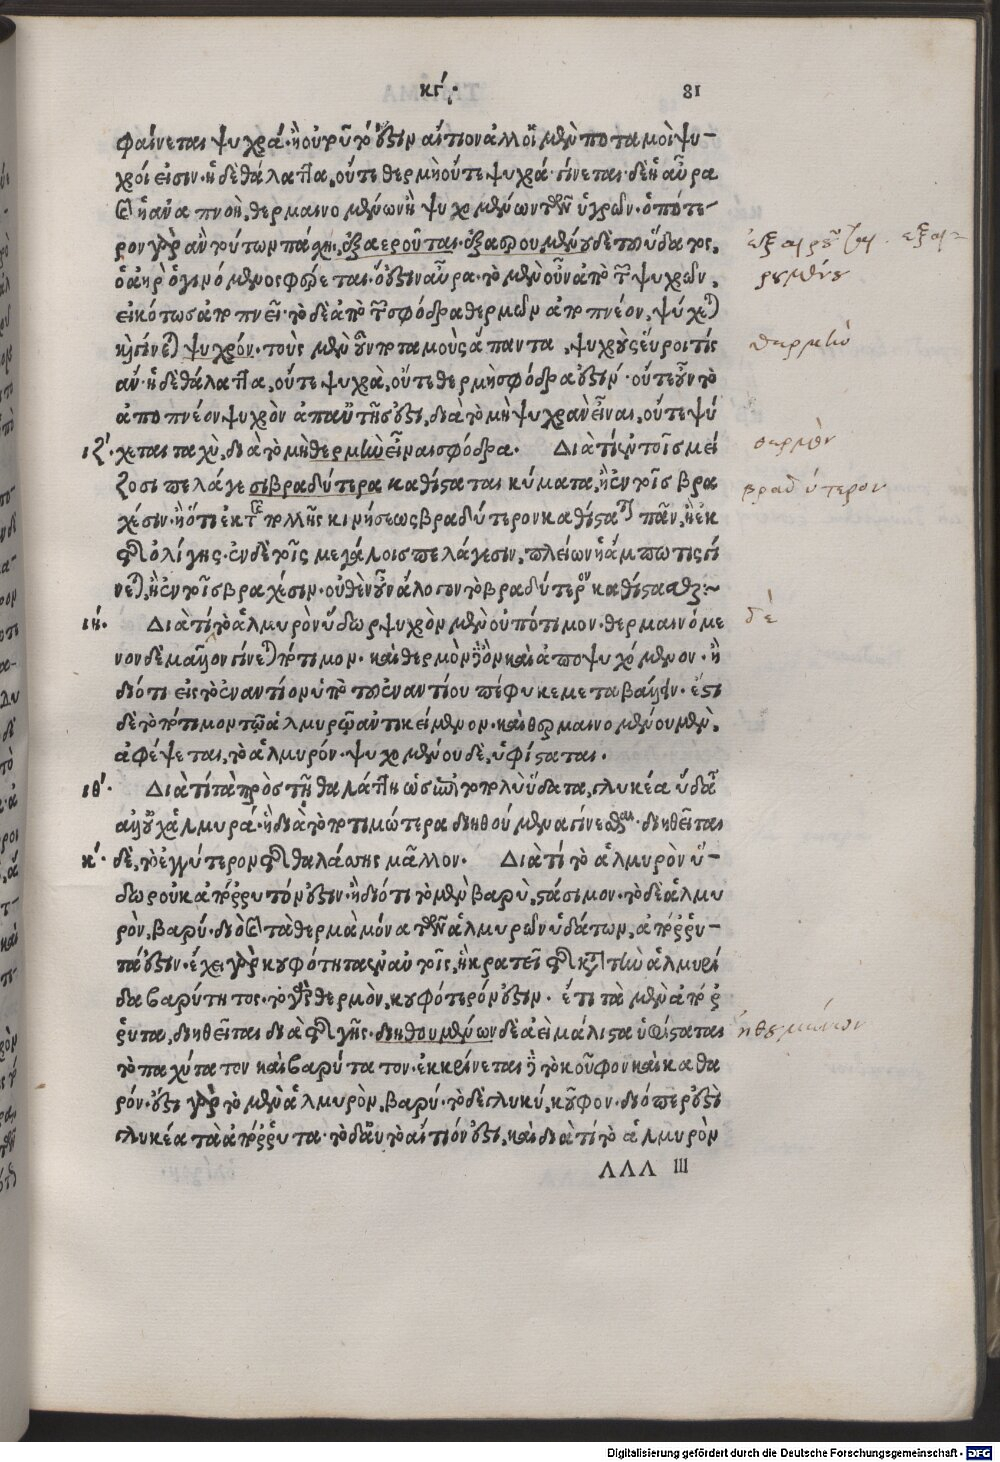 κγ΄.
81
φαίνεται ψυχρά. ἢ οὐ τοῦτό ἐστιν αἴτιον ἀλλ' οἱ μὲν ποταμοὶ ψυ-
χροί εἰσιν. ἡ δὲ θάλαττα, οὔτε θερμὴ οὔτε ψυχρά. γίνεται δὲ ἡ αὔρα
καὶ ἡ ἀναπνοὴ, θερμαινομένων ἢ ψυχομένων τῶν ὑγρῶν. ὁπότε-
ρον γὰρ ἂν τούτων πάσχῃ, ἐξαεροῦται. ἐξαερουμένου δὲ τοῦ ὕδατος,
ὁ ἀὴρ ὁ γινόμενος φέρεται. ὅ ἐστιν αὔρα. τὸ μὲν οὖν ἀπὸ τῶν ψυχρῶν,
εἰκότως ἀποπνεῖ. τὸ δὲ ἀπὸ τῶν σφόδρα θερμῶν ἀποπνέον, ψύχεται
καὶ γίνεται ψυχρόν. τοὺς μὲν οὖν ποταμοὺς ἅπαντα, ψυχροὺς εὕροι τίς
ἄν. ἡ δὲ θάλαττα, οὔτε ψυχρὰ, οὔτε θερμὴ σφόδρα ἐστίν. οὔτε οὖν τὸ
ἀποπνέον ψυχρὸν ἀπ' αὐτῆς ἐστι, διὰ τὸ μὴ ψυχρὰν εἶναι, οὔτε ψύ
ιζ΄. χεται ταχὺ, διὰ τὸ μὴ θερμὴν εἶναι σφόδρα. Διὰ τί ἐν τοῖς μεί
ζοσι πελάγεσι βραδύτερα καθίσταται κύματα, ἢ ἐν τοῖς βρα
χέσιν. ἢ ὅτι ἐκ τῆς πολλῆς κινήσεως βραδύτερον καθίσταται πᾶν, ἢ ἐκ
τῆς ὀλίγης. ἐν δὲ τοῖς μεγάλοις πελάγεσιν, πλείων ἡ ἄμπωτις γί
νεται, ἢ ἐν τοῖς βραχέσιν. οὐθὲν οὖν ἄλογον τὸ βραδύτερον καθίστασθαι:~
ιη΄. Διὰ τί τὸ ἁλμυρὸν ὕδωρ ψυχρὸν μὲν οὐ πότιμον. θερμαινόμε
νον δὲ μᾶλλον γίνεται πότιμον. καὶ θερμὸν ὂν καὶ ἀποψυχόμενον. ἢ
διότι εἰς τὸ ἐναντίον ὑπὸ τοῦ ἐναντίου πέφυκε μεταβάλλειν. ἔστι
δὲ τὸ πότιμον τῷ ἁλμυρῷ ἀντικείμενον. καὶ θερμαινομένου μὲν,
ἀφέψεται, τὸ ἁλμυρόν. ψυχομένου δὲ, ὑφίσταται.
ιθ΄. Διὰ τί τὰ πρὸς τῇ θαλάττῃ ὡς ἐπὶ τὸ πολὺ ὕδατα, γλυκέα ὕδατα
ἀλλ' οὐχ ἁλμυρά. ἢ διὰ τὸ ποτιμώτερα διηθούμενα γίνεσθαι. διηθεῖται
κ΄. δὲ, τὸ ἐγγύτερον τῆς θαλάσσης μᾶλλον. Διὰ τί τὸ ἁλμυρὸν ὕ-
δωρ οὐκ ἀπόρρυτόν ἐστιν. ἢ διότι τὸ μὲν βαρὺ, στάσιμον. τὸ δὲ ἁλμυ
ρὸν, βαρύ. διὸ καὶ τὰ θερμὰ μόνα τῶν ἁλμυρῶν ὑδάτων, ἀπόρρυ-
τά ἐστιν. ἔχει γὰρ κουφότητας ἐν αὑτοῖς, ἢ κρατεῖ τῆς κατὰ τὴν ἁλμυρί
δα βαρύτητος. τὸ γὰρ θερμὸν, κουφότερόν ἐστιν. ἔτι τὰ μὲν ἀπόρ
ρυτα, διηθεῖται διὰ τῆς γῆς. διηθουμένων δὲ ἀεὶ μάλιστα ὑφίσταται
τὸ παχύτατον καὶ βαρύτατον. ἐκκρίνεται δὲ τὸ κοῦφον καὶ καθα
ρόν. ἔστι γὰρ τὸ μὲν ἁλμυρὸν, βαρύ. τὸ δὲ γλυκύ, κοῦφον. διόπερ ἐστὶ
γλυκέα τὰ ἀπόρρυτα. τὸ δ' αὐτὸ αἴτιόν ἐστι, καὶ διὰ τί τὸ ἁλμυρὸν
ΛΛΛ III
ἐξαιρεῖται. ἐξαι-
ρουμένου
θερμὸν
θερμὸν
βραδύτερον
δὲ
ἠθουμένων
Digitalisierung gefördert durch die Deutsche Forschungsgemeinschaft - DFG